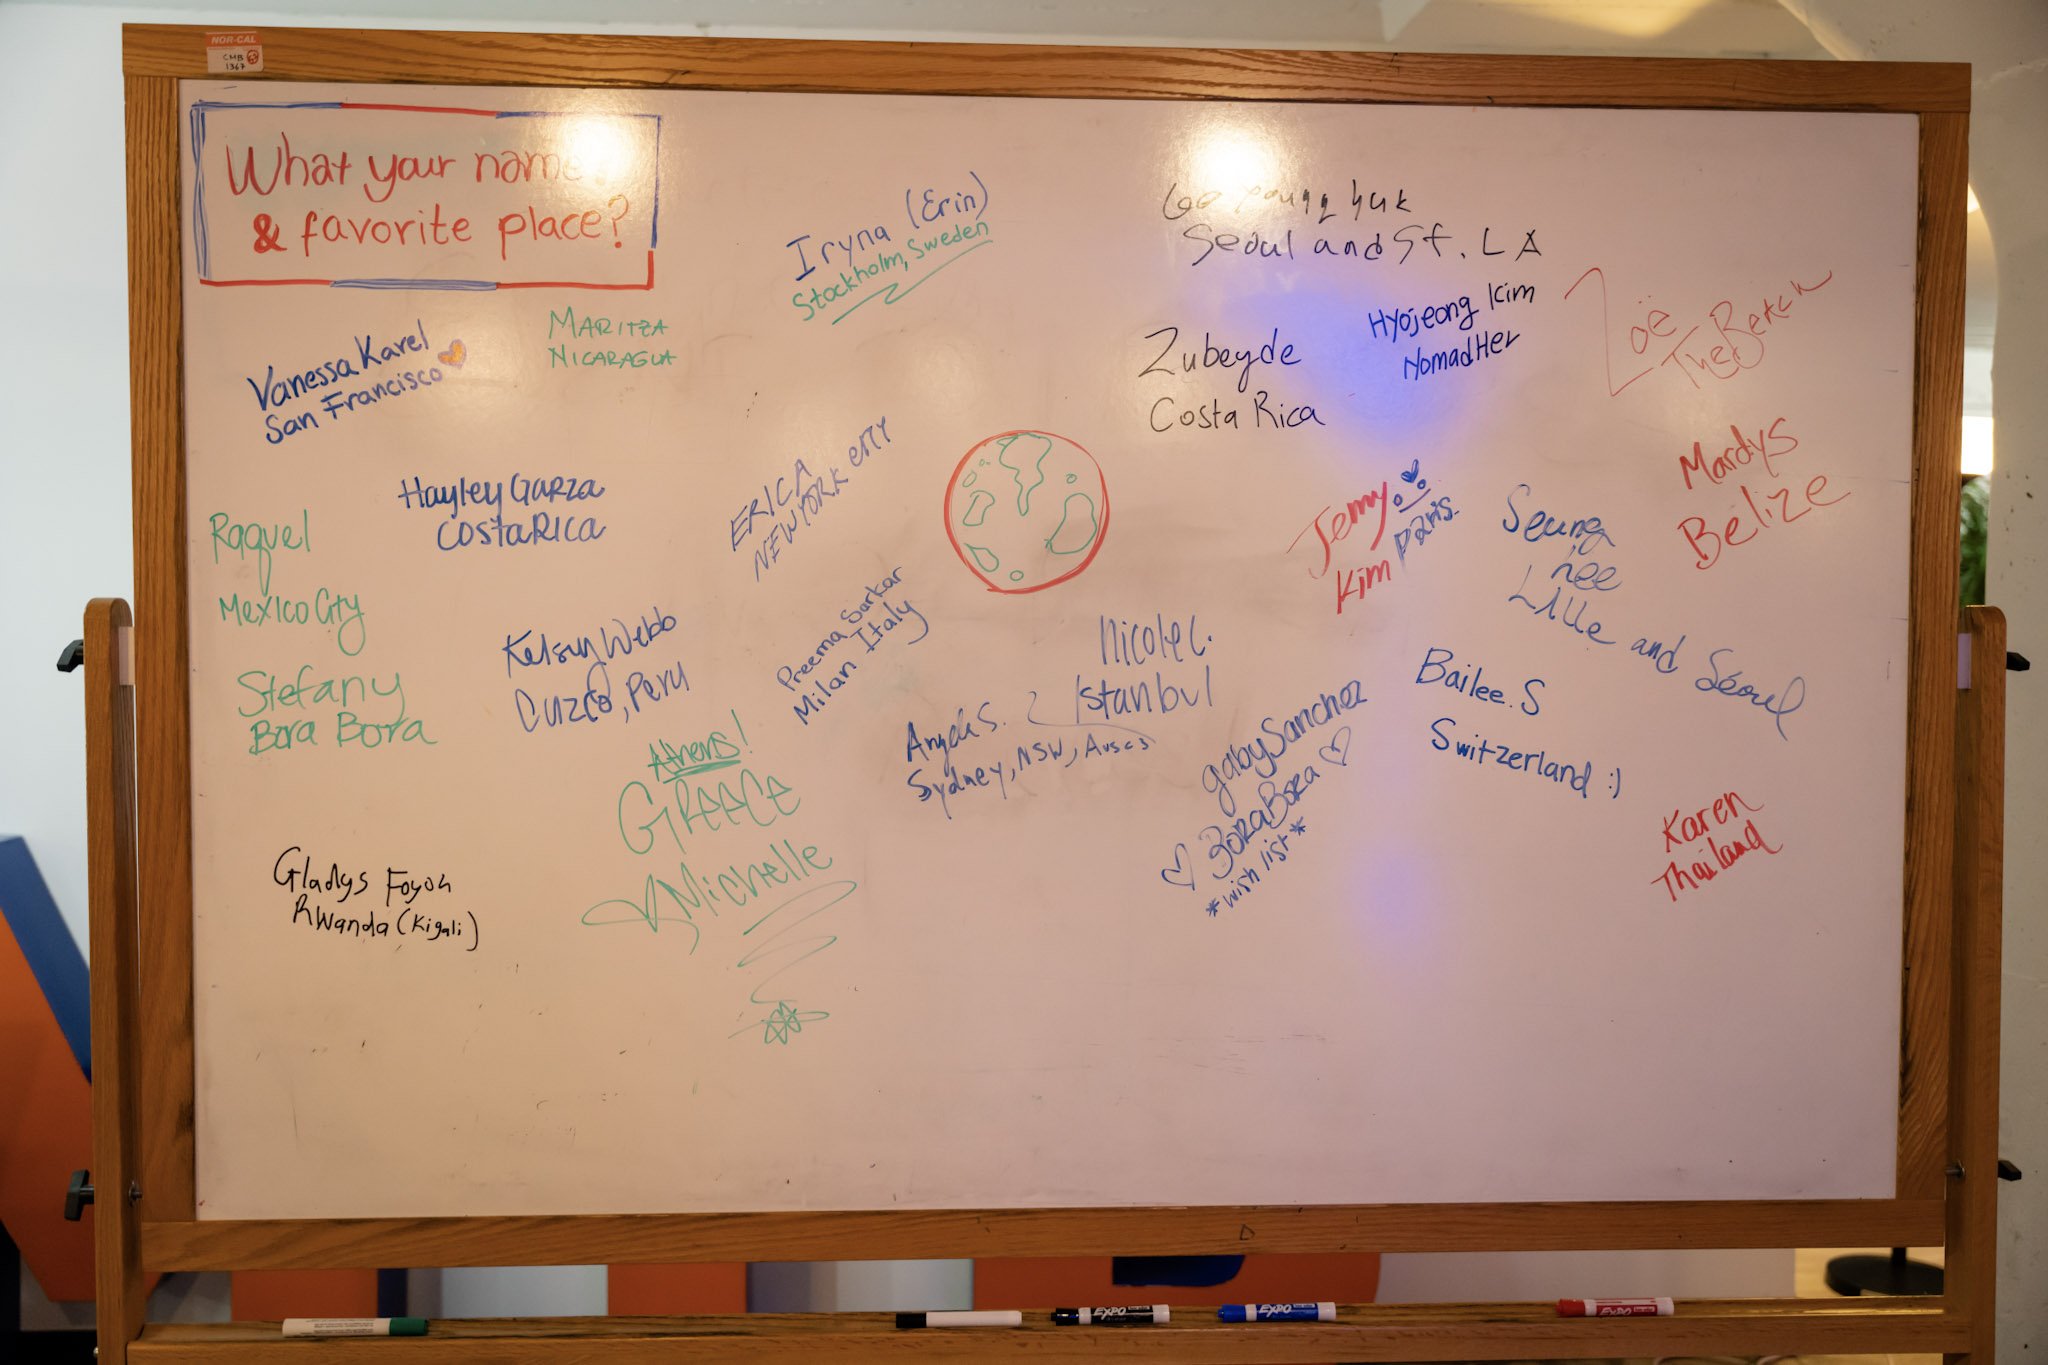 NOR-CAL
CMB
1367
What your name
& favorite place?
Iryna (Erin)
Stockholm, Sweden
Seoul and SF. LA
Vanessa Karel
San Francisco
MARITZA
NICARAGUA
Zubeyde
Costa Rica
Hyojeong Kim
NomadHer
Zoë
The Beach
Raquel
Mexico City
Hayley Garza
Costa Rica
ERICA
NEW YORK CITY
Jenny
Kim Paris.
Seung
hee
Lille and Séoul
Mardys
Belize
Stefany
Bora Bora
Kelsey Webb
Cuzco, Peru
Preema Sarkar
Milan Italy
Nicole C.
Istanbul
Angela S.
Sydney, NSW,
Gaby Sanchez
Bora Bora
*wish list*
Bailee. S
Switzerland :)
Athens!
Greece
Michelle
Gladys
Rwanda (Kigali)
Karen
Thailand
EXPO
EXPO
EXPO